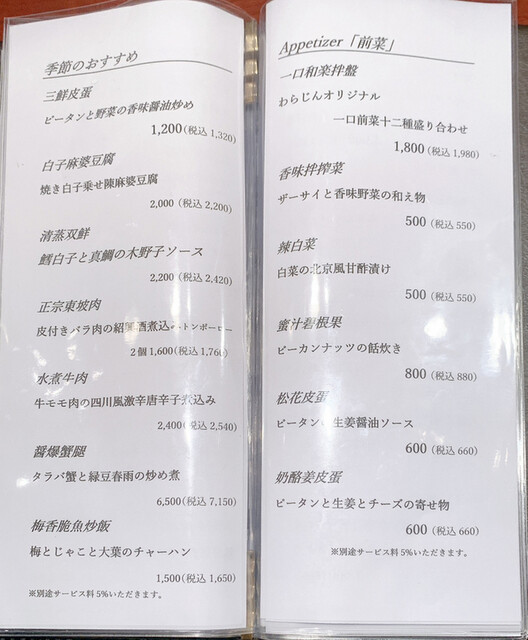 季節のおすすめ
三鮮皮蛋
ピータンと野菜の香味醤油炒め
1,200(税込 1,320)
白子麻婆豆腐
焼き白子乗せ陳麻婆豆腐
2,000 (税込 2,200)
清蒸双鮮
鱈白子と真鯛の木野子ソース
2,200 (税込 2,420)
正宗東坡肉
皮付きバラ肉の紹興酒煮込み~トンポーロー~
2個 1,600(税込 1,760)
水煮牛肉
牛モモ肉の四川風激辛唐辛子煮込み
2,400(税込 2,540)
醤爆蟹腿
タラバ蟹と緑豆春雨の炒め煮
6,500(税込 7,150)
梅香脆魚炒飯
梅とじゃこと大葉のチャーハン
1,500(税込 1,650)
※別途サービス料 5%いただきます。
Appetizer「前菜」
一口和楽拌盤
わらじんオリジナル
一口前菜十二種盛り合わせ
1,800 (税込 1,980)
香味拌搾菜
ザーサイと香味野菜の和え物
500 (税込 550)
辣白菜
白菜の北京風甘酢漬け
500 (税込 550)
蜜汁碧根果
ピーカンナッツの飴炊き
800 (税込 880)
松花皮蛋
ピータン 生姜醤油ソース
600 (税込 660)
奶酪姜皮蛋
ピータンと生姜とチーズの寄せ物
600 (税込 660)
※別途サービス料 5%いただきます。